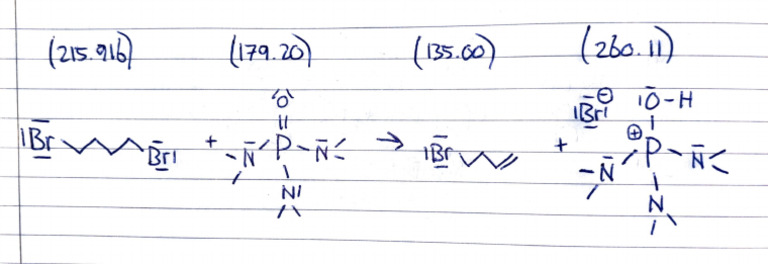 (215.916) (179.20) (135.00) (260.11)
O Br⊖ O-H
Br Br + N P N → Br + N P⊕ N
N N